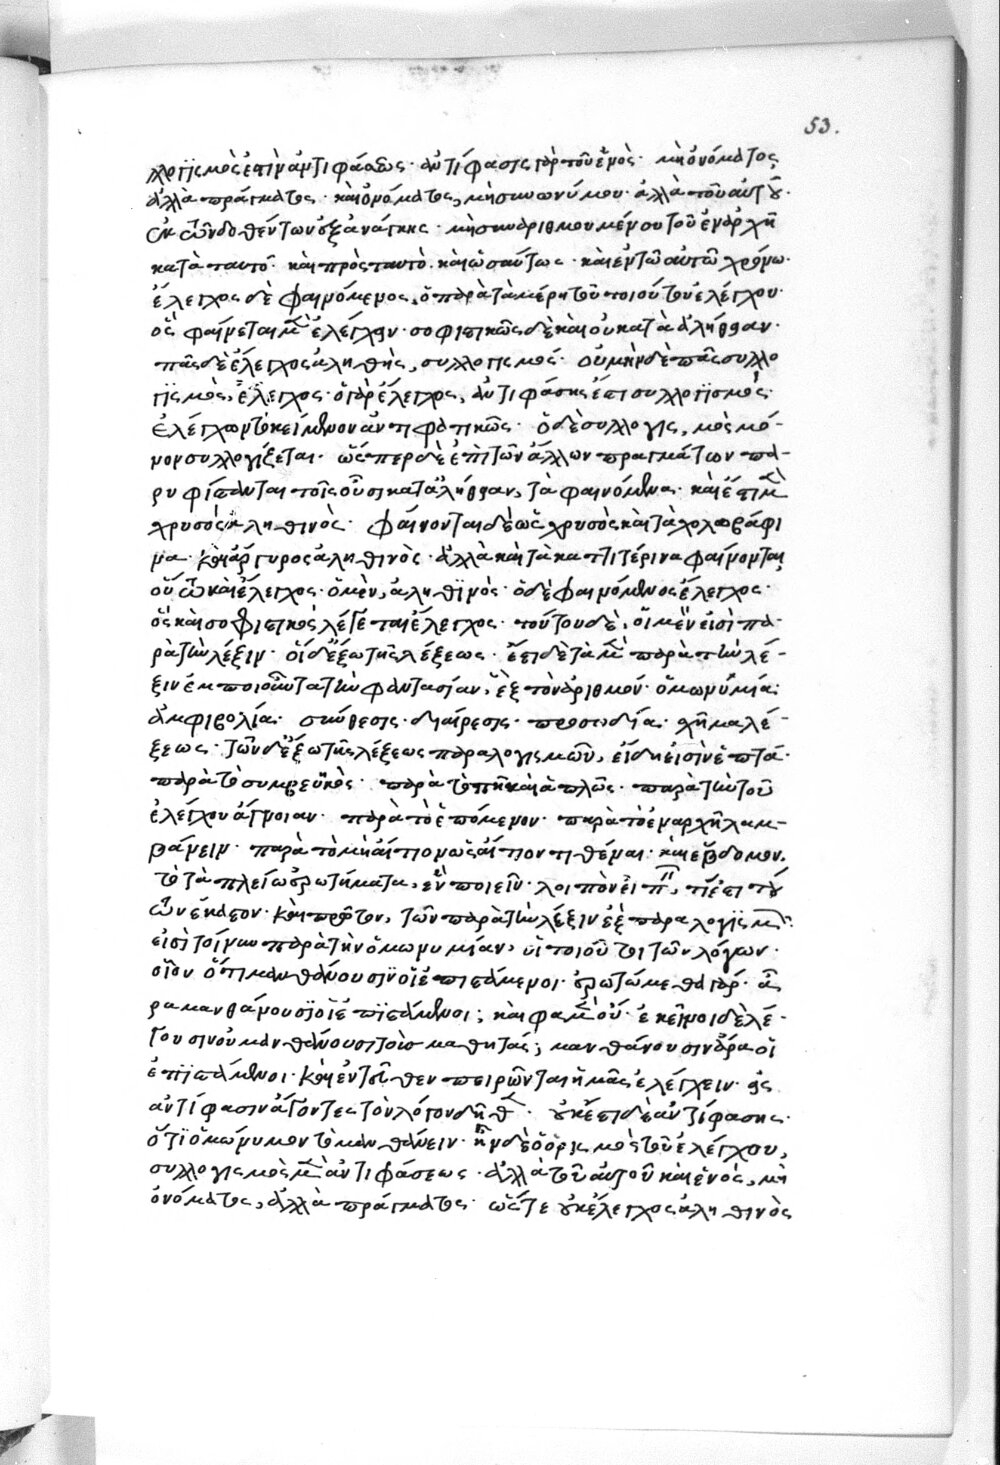 53.
λλογισμὸς ἐστὶν ἀντιφάσεως· ἀντίφασις γὰρ τοῦ ἑνὸς· μὴ ὀνόματος
ἀλλὰ πράγματος· καὶ ὀνόματος, μὴ συνωνύμου· ἀλλὰ τοῦ αὐτοῦ·
ἐκ τῶν δοθέντων ἐξ ἀνάγκης· μὴ συναριθμουμένου τοῦ ἐν ἀρχῇ
κατὰ ταυτὸ· καὶ πρὸς ταυτὸ· καὶ ὡσαύτως· καὶ ἐν τῷ αὐτῷ χρόνω·
ἔλεγχος δὲ φαινόμενος, ὁ παρὰ τὰ μέρη τοῦ τοιούτου ἐλέγχου·
ὃς φαίνεται μὲν ἐλέγχειν· σοφιστικῶς δὲ καὶ οὐ κατὰ ἀλήθειαν·
πᾶς δὲ ἔλεγχος ἀληθὴς, συλλογισμός· οὐ μὴν δὲ πᾶς συλλο
γισμὸς, ἔλεγχος· ὁ γὰρ ἔλεγχος, ἀντιφάσης ἐστι συλλογισμὸς·
ἐλέγχων τὸ κείμενον ἀντιφατικῶς· ὁ δὲ συλλογισμὸς μό-
νον συλλογίζεται· ὥσπερ δὲ ἐπὶ τῶν ἄλλων πραγμάτων πα-
ρυφίστανται τοῖς οὖσι κατὰ ἀλήθειαν, τὰ φαινόμενα· καὶ ἔστι μὲν
χρυσὸς ἀληθινὸς· φαίνονται δὲ ὡς χρυσὸς καὶ τὰ χολοβάφι
να· καὶ ἄργυρος ἀληθινὸς· ἀλλὰ καὶ τὰ κατιτέρινα φαίνονται,
οὕτω καὶ ἔλεγχος· ὁ μὲν, ἀληθινὸς· ὁ δὲ φαινόμενος ἔλεγχος·
ὃς καὶ σοφιστικὸς λέγεται ἔλεγχος· τούτου δὲ, οἱ μὲν εἰσὶ πα-
ρὰ τὴν λέξιν· οἱ δὲ ἔξω τῆς λέξεως· ἔστι δὲ τὰ μὲν παρὰ τὴν λέ-
ξιν ἐμποιοῦντα τὴν φαντασίαν, ἓξ τὸν ἀριθμού· ὁμωνυμία·
ἀμφιβολία· σύνθεσις· διαίρεσις· προσωδία· σχῆμα λέ-
ξεως· τῶν δὲ ἔξω τῆς λέξεως παραλογισμῶν, εἴδη εἰσὶν ἑπτά·
παρὰ τὸ συμβεβηκὸς· παρὰ τὸ πῆ καὶ ἁπλῶς· παρὰ τὴν τοῦ
ἐλέγχου ἄγνοιαν· παρὰ τὸ ἑπόμενον· παρὰ τὸ ἐν ἀρχῆ λαμ-
βάνειν· παρὰ τὸ μὴ αἴτιον ὡς αἴτιον τιθέναι· καὶ ἕβδομον,
τὸ τὰ πλείω ἐρωτήματα, ἓν ποιεῖν· λοιπὸν εἰπεῖν, τί ἐστι τού
των ἕκαστον· καὶ πρῶτον, τῶν παρὰ τὴν λέξιν ἓξ παραλογισμῶν·
εἰσὶ τοίνυν παρὰ τὴν ὁμωνυμίαν, οἱ τοιοῦτοι τῶν λόγων·
οἷον ὅτι μανθάνουσιν οἱ ἐπιστάμενοι· ἐρωτῶμεθα γάρ· ἆ
ρα μανθάνουσιν οἱ ἐπιστάμενοι; καὶ φαμὲν οὔ· ἐκεῖνοι δὲ λέ-
γουσιν οὐ μανθάνουσι τοὺς μαθητάς; μανθάνουσιν ἄρα οἱ
ἐπιστάμενοι· καὶ ἐντεῦθεν πειρῶνται ἡμᾶς ἐλέγχειν· εἰς
ἀντίφασιν ἄγοντες τὸν λόγον δῆθεν· οὐκ ἔστι δὲ ἀντίφασης·
ὅτι ὁμώνυμον τὸ μανθάνειν· ἦν δὲ ὁ ὁρισμὸς τοῦ ἐλέγχου,
συλλογισμὸς μὲν ἀντιφάσεως· ἀλλὰ τοῦ αὐτοῦ καὶ ἑνός, μὴ
ὀνόματος, ἀλλὰ πράγματος· ὥστε οὐκ ἔλεγχος ἀληθινὸς